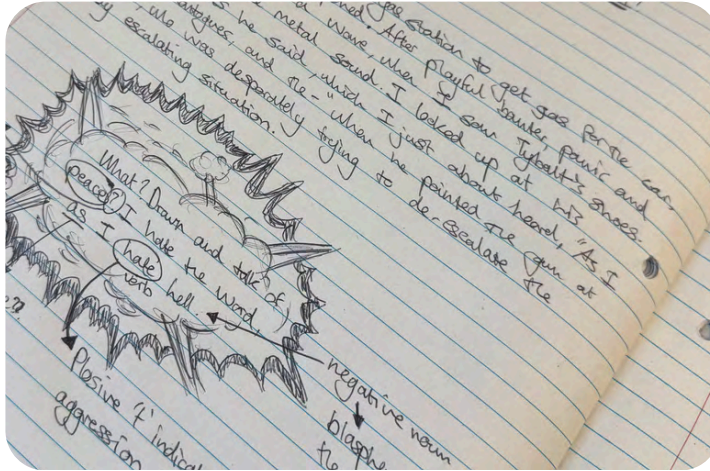 gas station to get gas for the car.
After playful banter, panic and
wave, when I saw Tybalt's shoes.
metal sound. I looked up at his
he said, which I just about heard, "As I
and the-" when he pointed the gun at
me was desperately trying to de-escalate the
escalating situation.
What? Drawn and talk of
peace? I hate the word,
as I hate hell
verb
negative noun
Plosive 't'
aggression